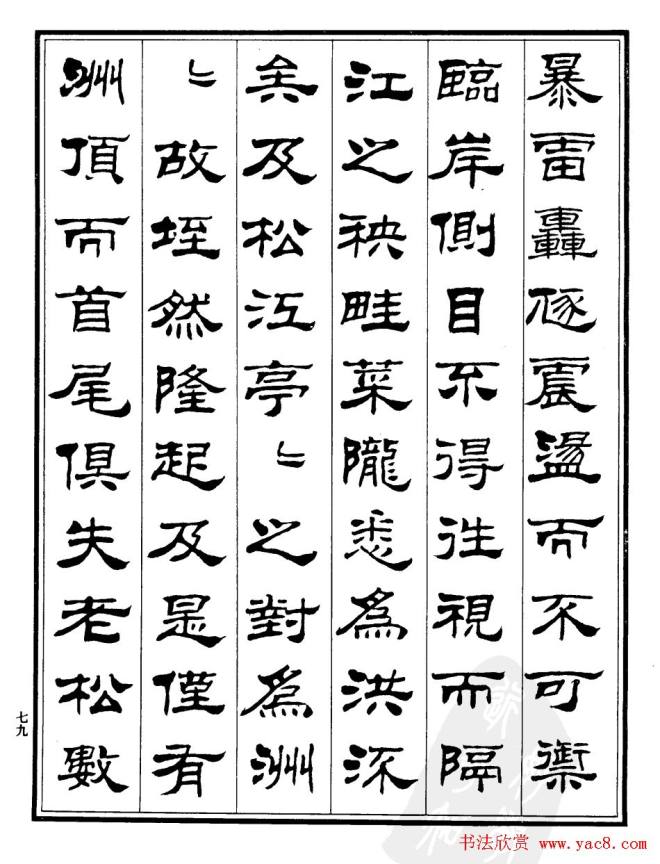 暴雷轟震盪而不可禦
臨岸側目不得注視而隔
江之秧畦菜隴悉爲洪
矣及松江亭〻之對爲洲
〻故垤然隆起及是僅有
洲頂而首尾俱失老松數
七九
书法欣赏 www.yac8.com